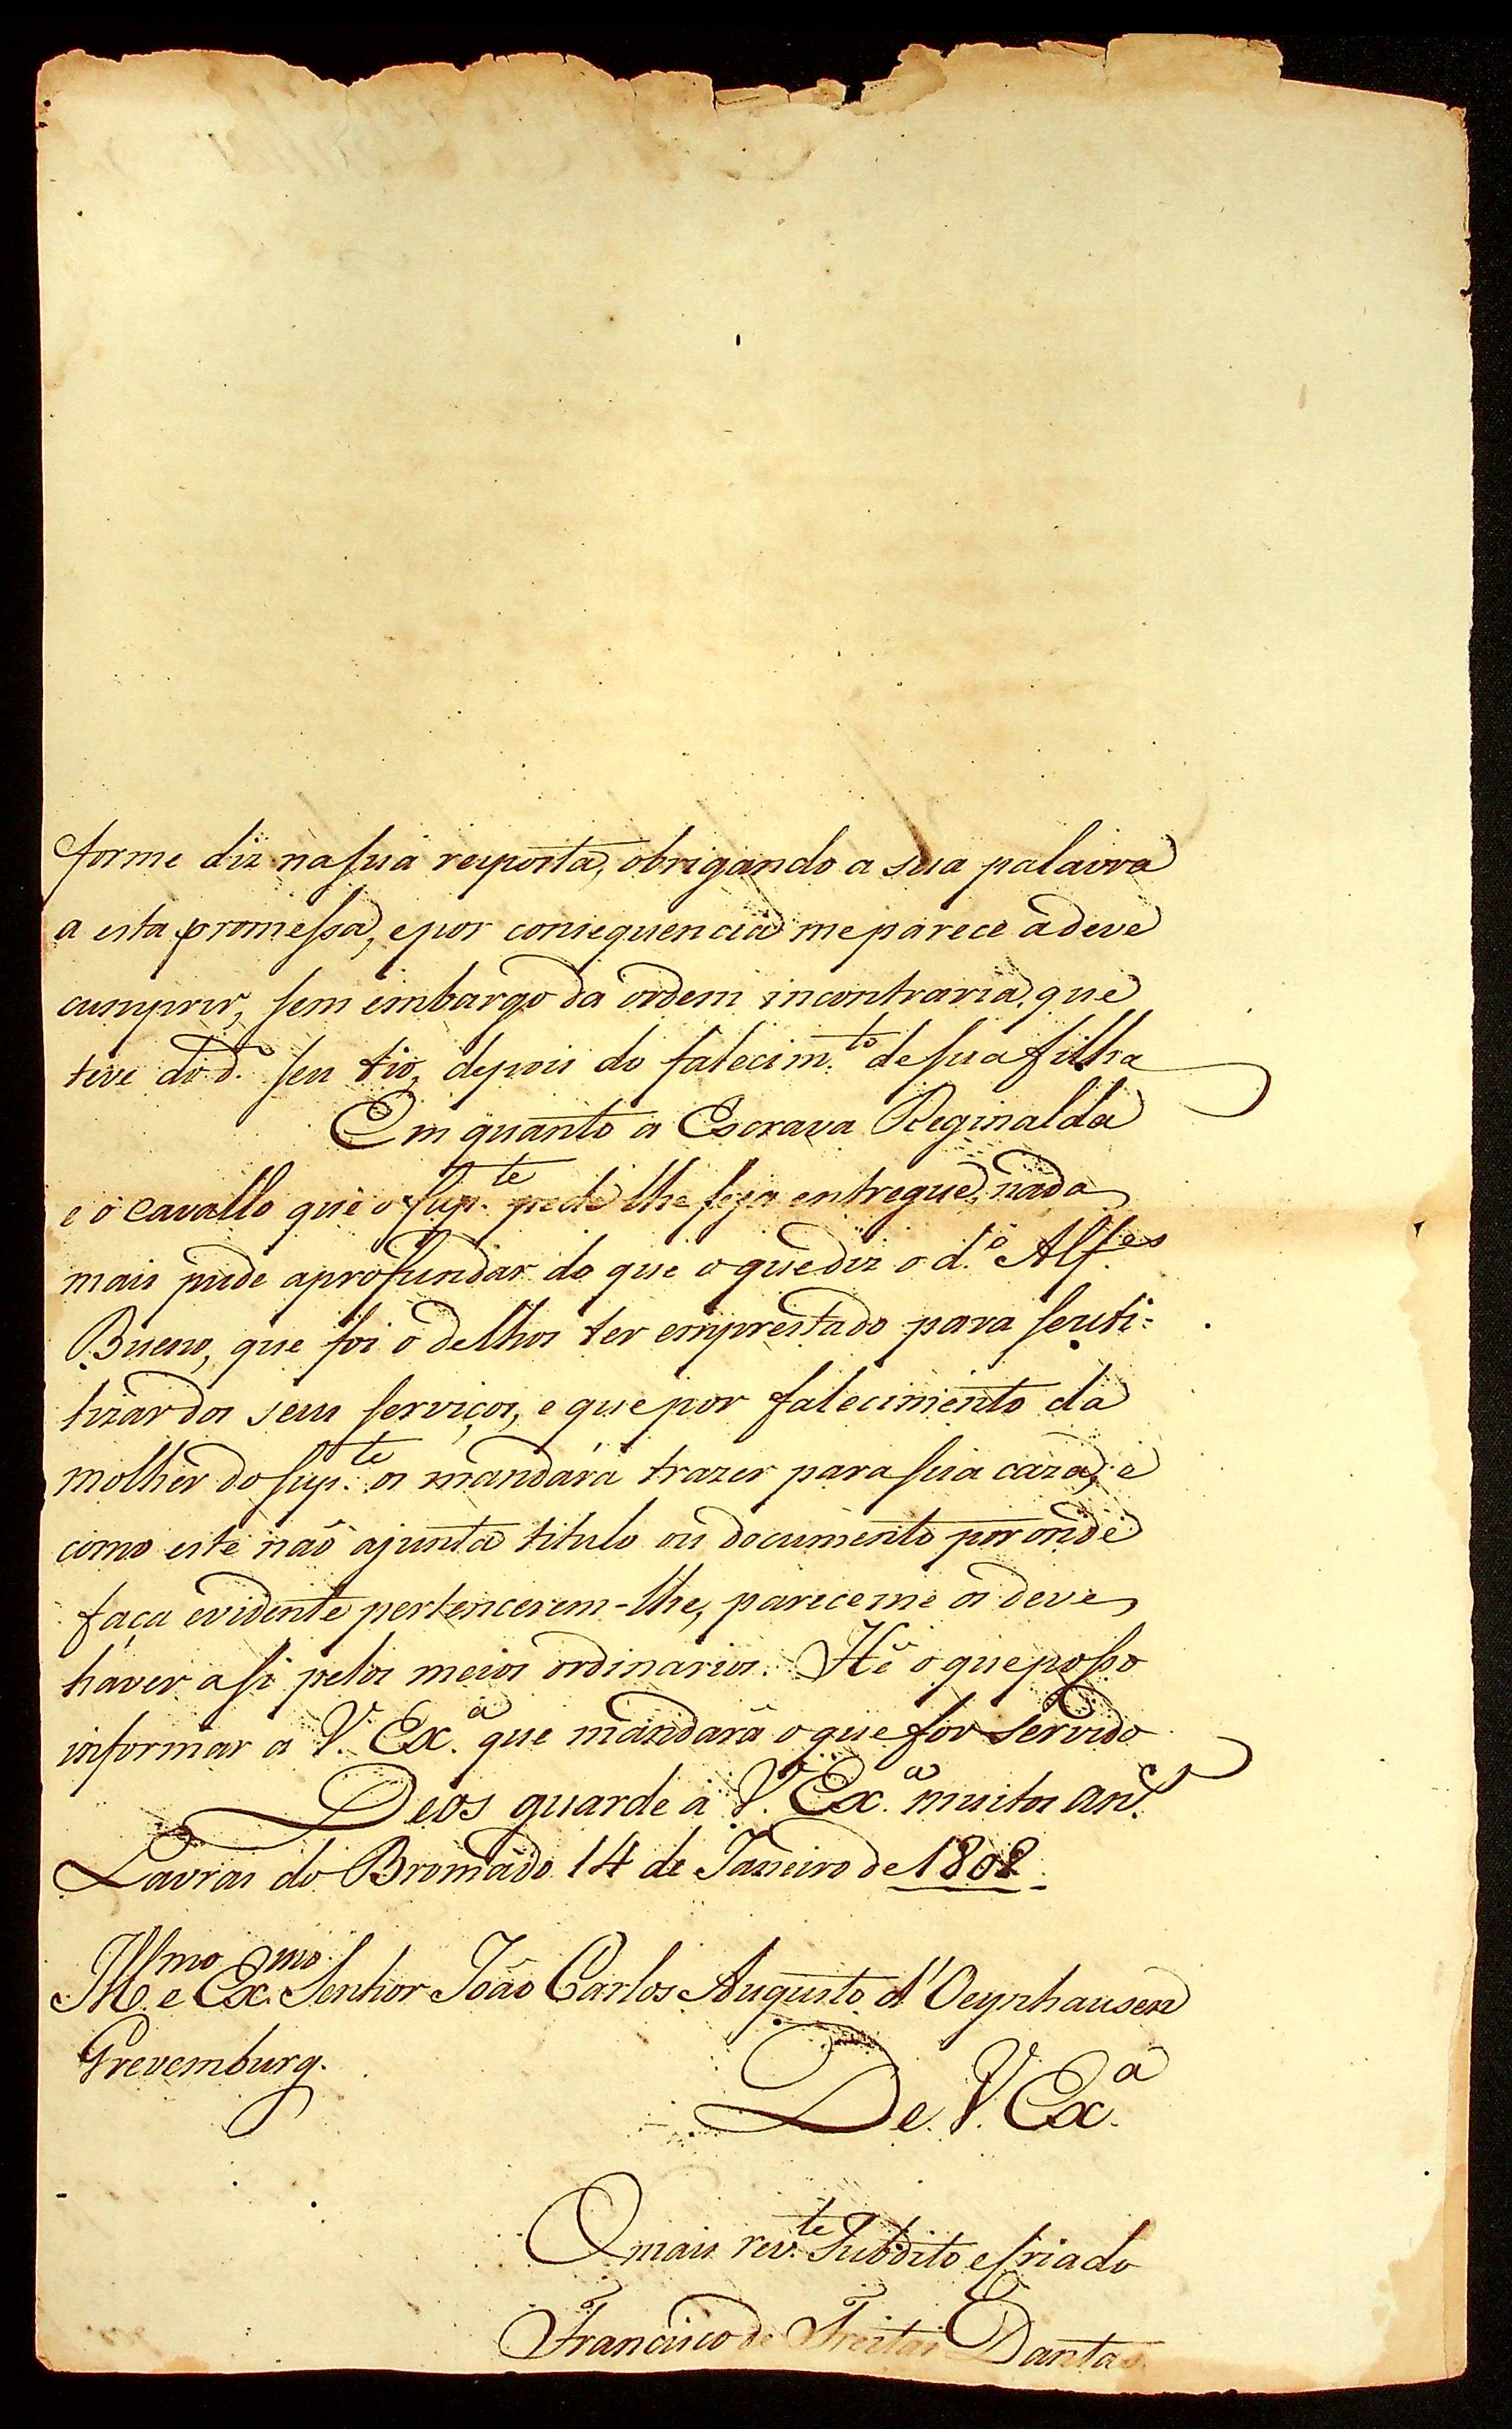 forme diz nasua resposta, obrigando a sua palavra
a esta promessa, epor consequencia meparece adeve
cumprir, sem embargo da ordem incontraria, que
teve do d.º seu tio, depois do falecim.to desua filha
Em quanto a Escrava Reginalda
e o cavallo que o Sup.te pede lhe seja entregue, nada
mais pude aprofundar do que o que diz o d.º Alf.es
Bueno, que foi o delhos ter emprestado para seuti-
lizar dos seus serviços, e que por falecimento da
molher do Sup.te os mandára trazer para sua caza, e
como este não ajunta titulo ou documento por onde
faça evidente pertencerem-lhe, pareceme os deve
haver asi pelos meios ordinarios. Hé o que posso
informar a V. Ex.ª que mandará o que for servido
Deos guarde a V. Ex.ª muitos an.s
Lavras do Bromado 14 de Janeiro de 1808.
Ill.mo e Ex.mo Senhor João Carlos Augusto d'Oeynhausen
Grevemburg.
De V. Ex.ª
O mais rev.te Subdito e Criado
Francisco de Freitas Dantas